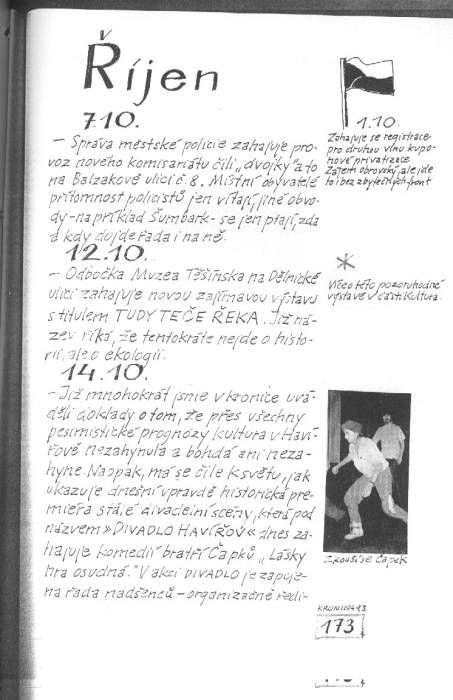 Říjen
7.10.
– Správa městské policie zahajuje pro-
voz nového komisariátu čili „dvojky" a to
na Balzakově ulici č. 8. Místní obyvatelé
přítomnost policistů jen vítají, jiné obvo-
dy – na příklad Šumbark – se jen ptají, zda
a kdy dojde řada i na ně.
12.10.
– Odbočka Muzea Těšínska na Dělnické
ulici zahajuje novou zajímavou výstavu
s titulem TUDY TEČE ŘEKA. Již ná-
zev říká, že tentokráte nejde o histo-
rii, ale o ekologii.
14.10.
– Již mnohokrát jsme v kronice uvá-
děli doklady o tom, že přes všechny
pesimistické prognózy kultura v Haví-
řově nezahynula a bohdá ani neza-
hyne. Naopak, má se čile k světu, jak
ukazuje dnešní vpravdě historická pre-
miéra stálé divadelní scény, která pod
názvem »DIVADLO HAVÍŘOV« dnes za-
hajuje komedií bratří Čapků „Lásky
hra osudná." V akci DIVADLO je zapoje-
na řada nadšenců – organizačně ředi-
1.10.
Zahajuje se registrace
pro druhou vlnu kupo-
nové privatizace
Zájem obrovský, ale jde
to i bez zbytečných front
*
Více o této pozoruhodné
výstavě v části Kultura.
Zkouší se Čapek
KRONIKA 93
173